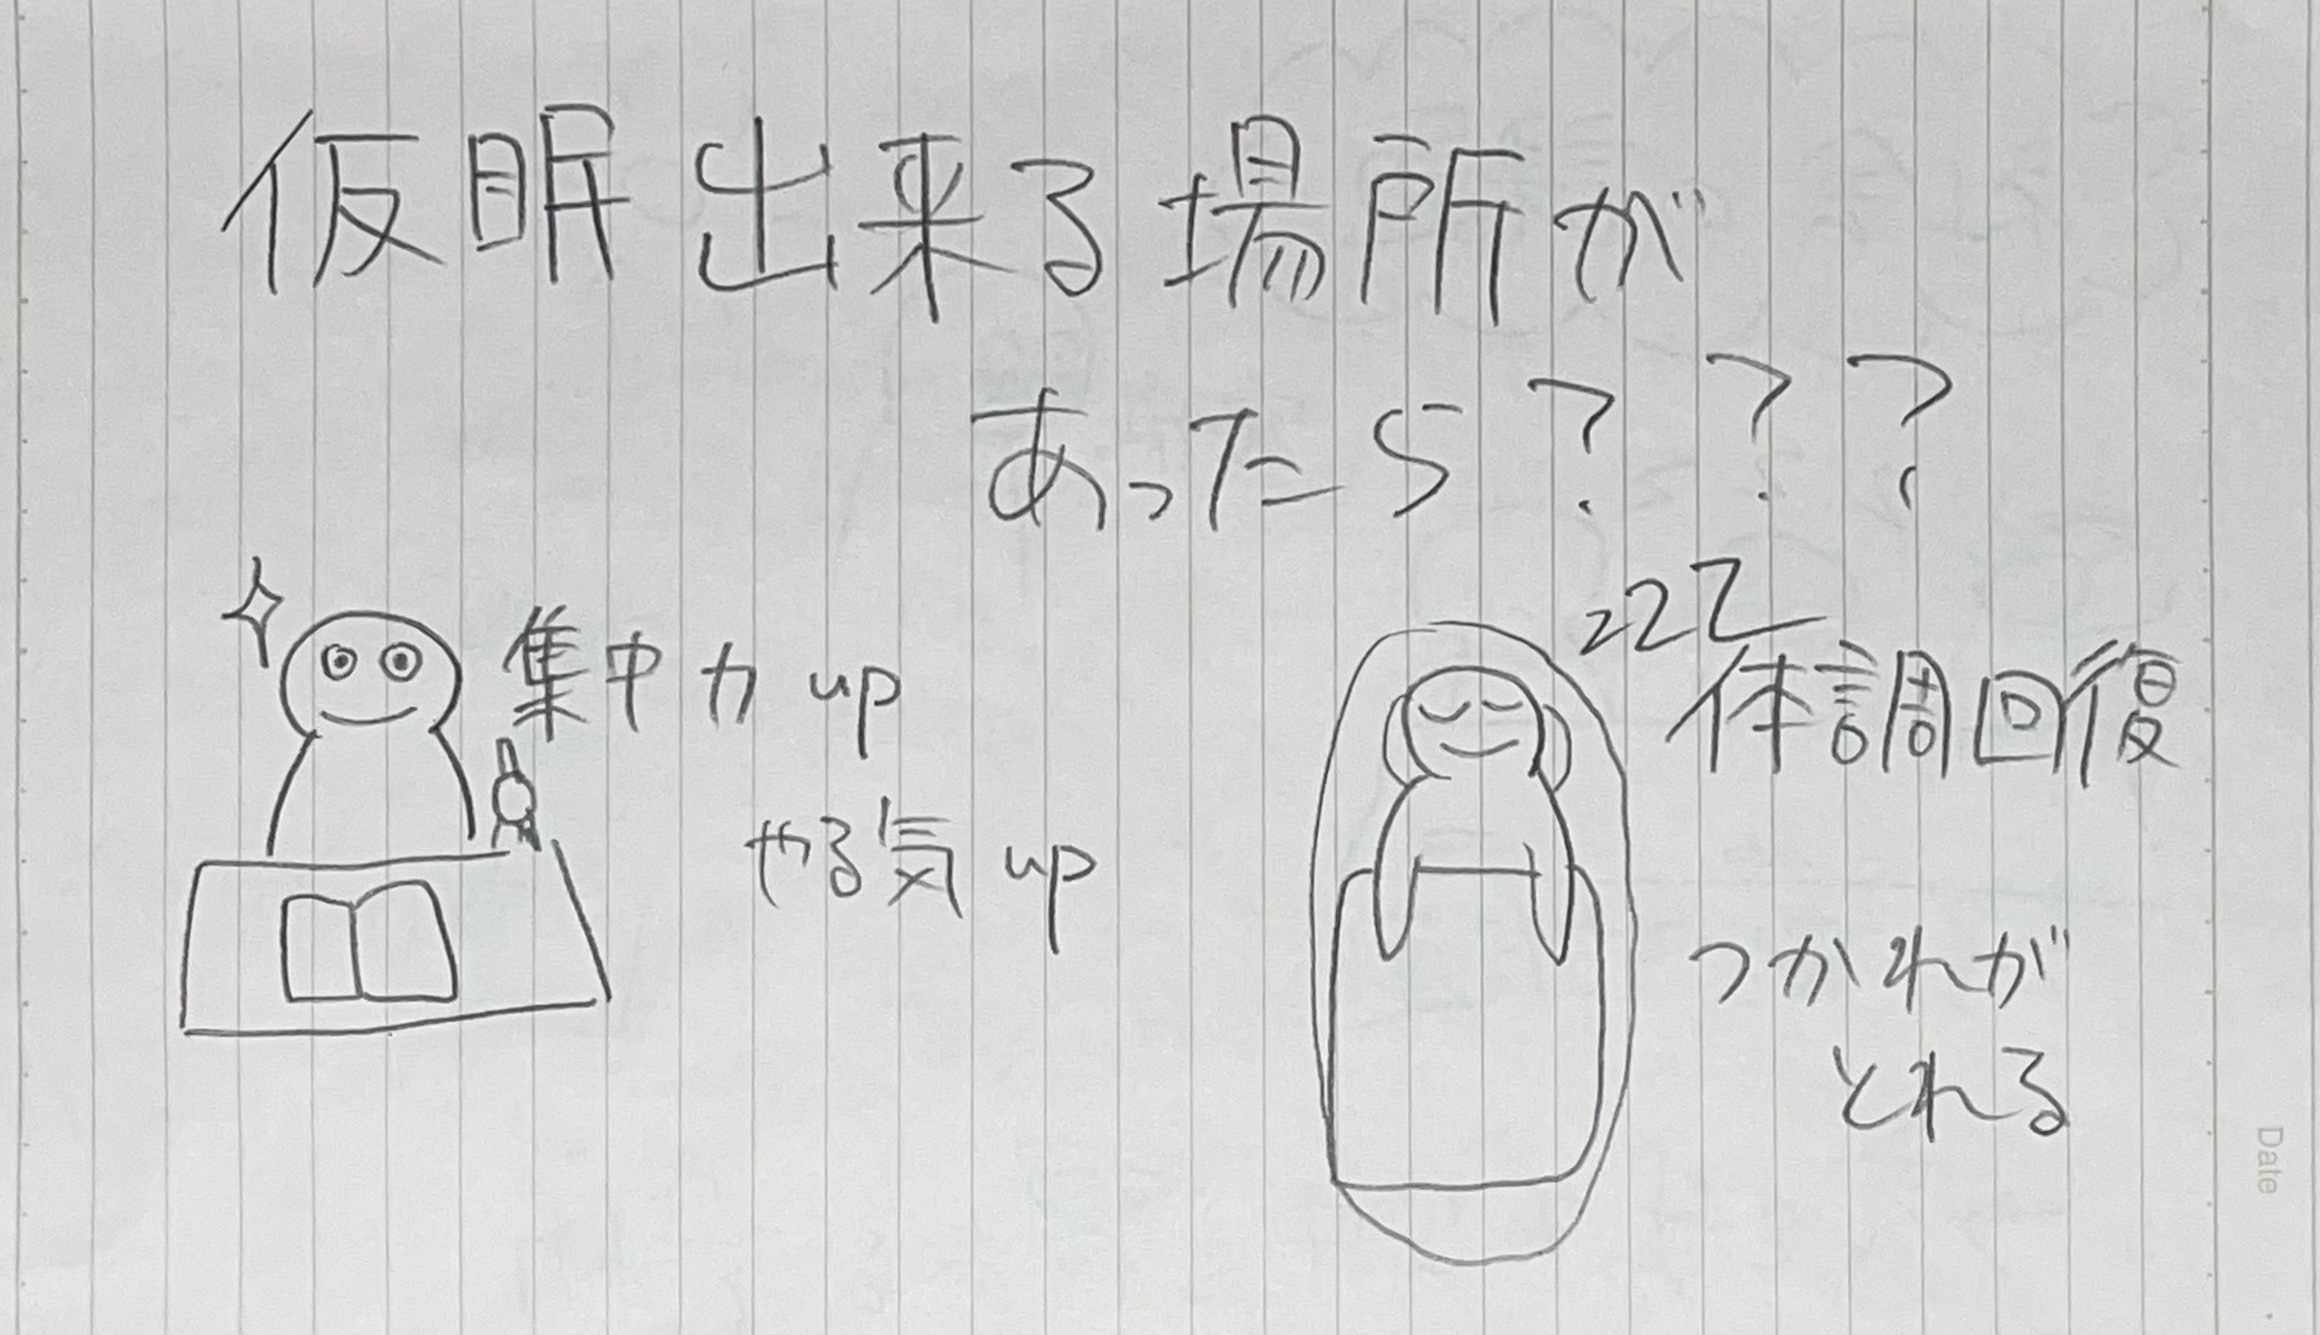 仮眠出来る場所が
あったら？？？
zzz
集中力 up
やる気 up
体調回復
つかれが
とれる
Date